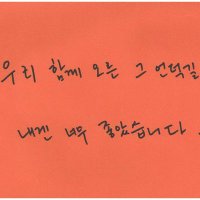 우리 함께 오른 그 언덕길
내겐 너무 좋았습니다.